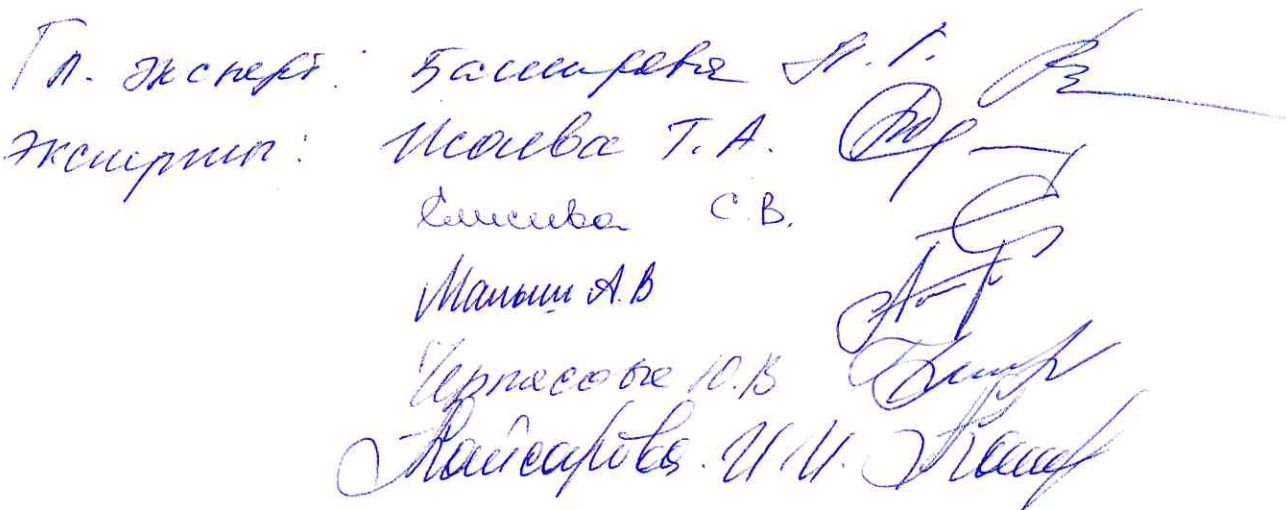 Гл. эксперт: Башарова Л. Г.
Эксперты: Исаева Т. А.
Елисеева С. В.
Малыш А. В
Ю. В
Кайсарова И. И.